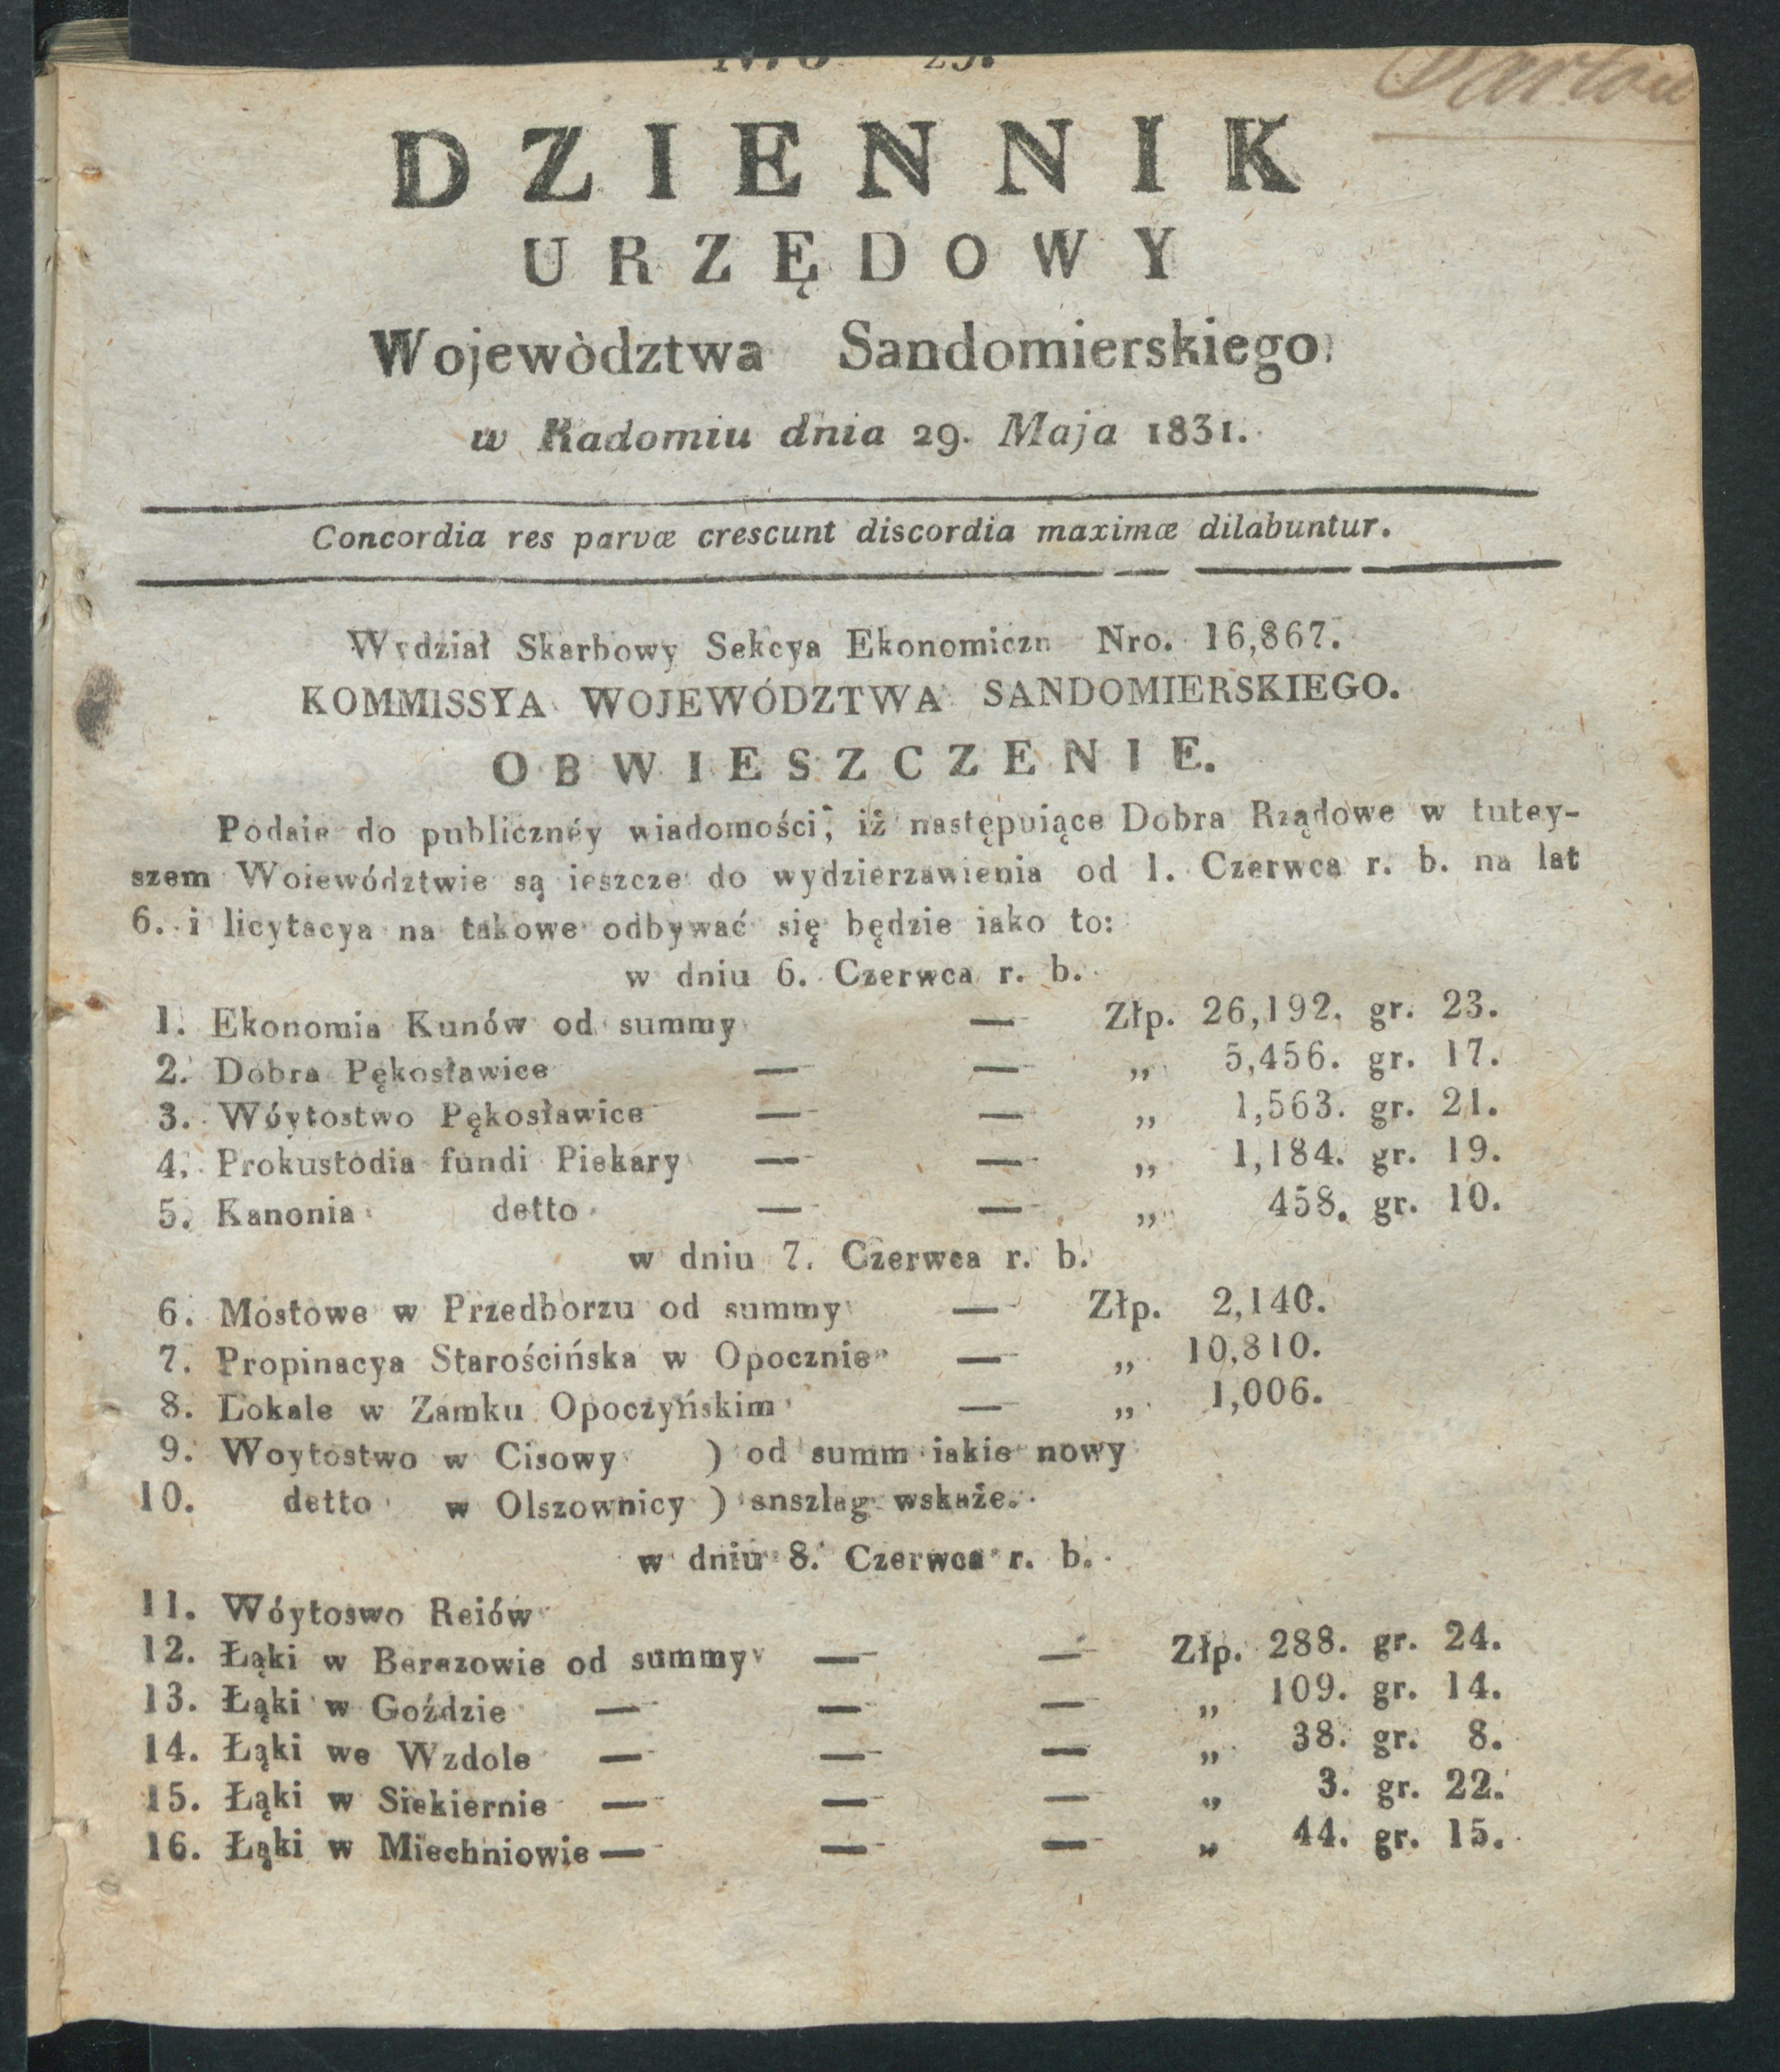 DZIENNIK
URZĘDOWY
Wojewòdztwa Sandomierskiego
w Radomiu dnia 29. Maja 1831.
Concordia res parvæ crescunt discordia maximæ dilabuntur.
Wydział Skarbowy Sekcya Ekonomiczn Nro. 16,867.
KOMMISSYA WOJEWÓDZTWA SANDOMIERSKIEGO.
OBWIESZCZENIE.
Podaie do publicznéy wiadomości, iż następuiące Dobra Rządowe w tutey-
szem Woiewództwie są ieszcze do wydzierzawienia od 1. Czerwca r. b. na lat
6. i licytacya na takowe odbywać się będzie iako to:
w dniu 6. Czerwca r. b.
1. Ekonomia Kunów od summy — Złp. 26,192. gr. 23.
2. Dobra Pękosławice — — „ 5,456. gr. 17.
3. Wóytostwo Pękosławice — — „ 1,563. gr. 21.
4. Prokustodia fundi Piekary — — „ 1,184. gr. 19.
5. Kanonia detto — — „ 458. gr. 10.
w dniu 7. Czerwca r. b.
6. Mostowe w Przedborzu od summy — Złp. 2,140.
7. Propinacya Starościńska w Opocznie — „ 10,810.
8. Lokale w Zamku Opoczyńskim — „ 1,006.
9. Woytostwo w Cisowy ) od summ iakie nowy
10. detto w Olszownicy ) anszlag wskaże.
w dniu 8. Czerwca r. b.
11. Wóytoswo Reiów
12. Łąki w Berezowie od summy — — Złp. 288. gr. 24.
13. Łąki w Goździe — — — „ 109. gr. 14.
14. Łąki we Wzdole — — — „ 38. gr. 8.
15. Łąki w Siekiernie — — — „ 3. gr. 22.
16. Łąki w Miechniowie — — — „ 44. gr. 15.